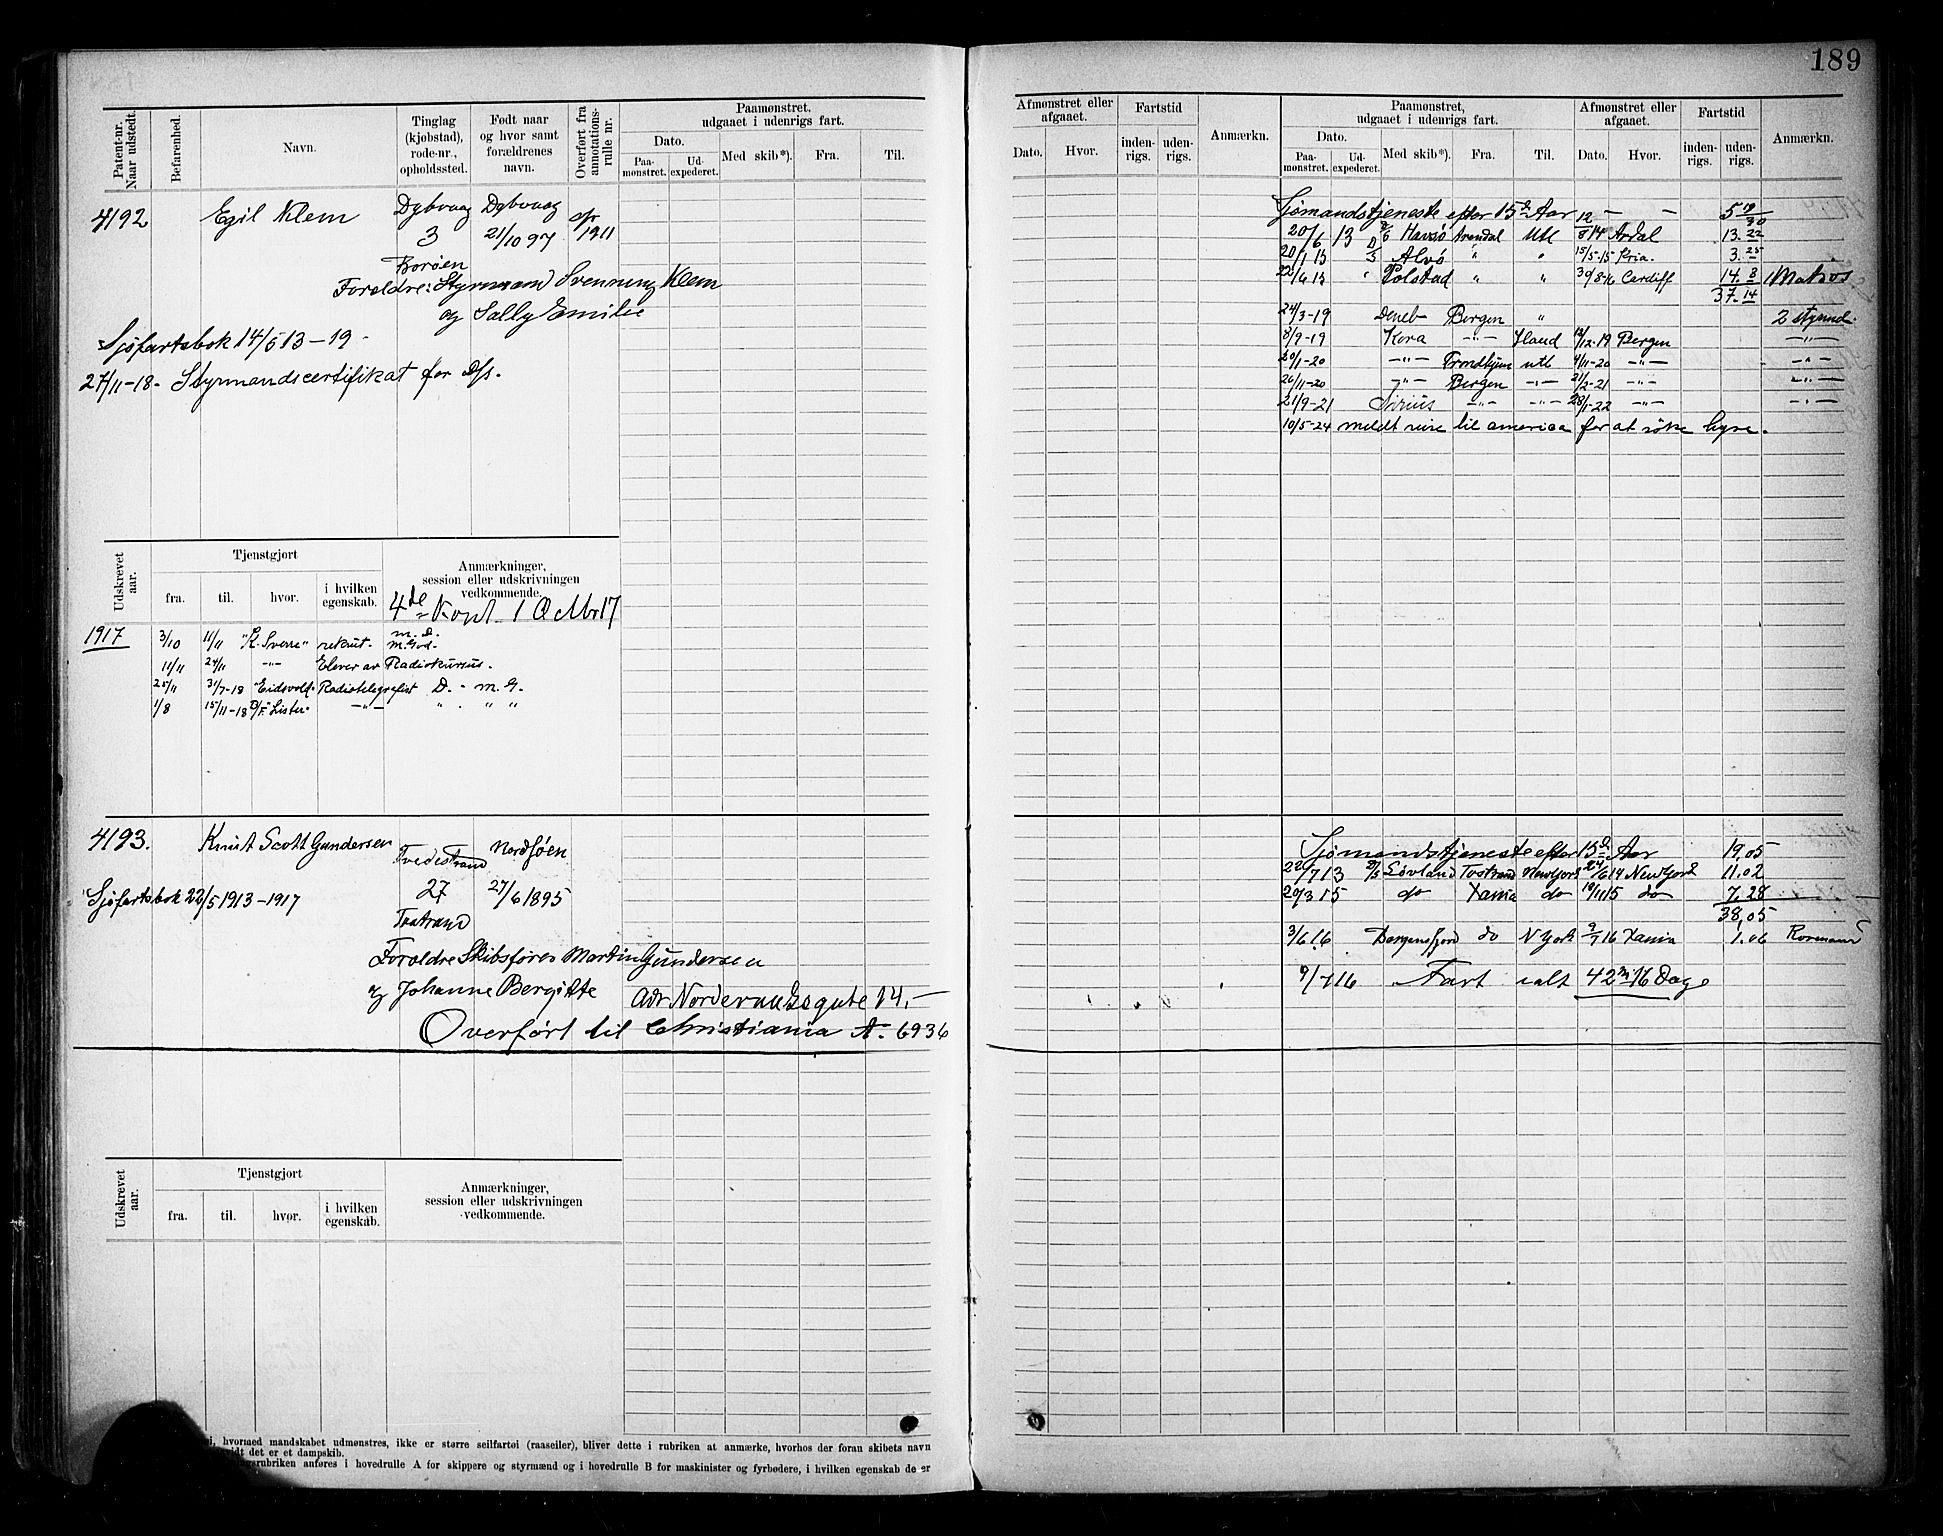 189
Patent-nr. Naar udstedt.
Befarenhed.
Navn.
Tinglag (kjøbstad), rode-nr., opholdssted.
Født naar og hvor samt forældrenes navn.
Overført fra annotations-rulle nr.
Paamønstret, udgaaet i udenrigs fart.
Dato.
Paa-mønstret.
Ud-expederet.
Med skib*).
Fra.
Til.
Afmønstret eller afgaaet.
Dato.
Hvor.
Fartstid
inden-rigs.
uden-rigs.
Anmærkn.
Paamønstret, udgaaet i udenrigs fart.
Dato.
Paa-mønstret.
Ud-expederet.
Med skib*).
Fra.
Til.
Afmønstret eller afgaaet.
Dato.
Hvor.
Fartstid
inden-rigs.
uden-rigs.
Anmærkn.
4192 Egil Klem Dybvaag Dybvaag
3 21/10 97 1911
Borøen
Foreldre: Styrmand Svenning Klem
og Sally Emilie
Sjøfartsbok 14/5 13 – 19 –
27/11-18. Styrmandscertifikat for D/s.
Sjømandstjeneste efter 15d Aar – – 5 19/30
20/6 13 Havsø Arendal Utl 12/8 14 Ardal 13. 22
20/1 15 Alvø " " 15/5-15 3. 25
22/6 15 " Polstad " " 30/8-16 Cardiff 14. 8 Matros
37. 14
24/3-19 Deneb Bergen " 2 styrmd.
8/9-19 Kora –"– 12/12-19 Bergen –"–
20/1-20 –"– Trondhjem utl 4/11-20 –"– –"–
26/11-20 –"– Bergen –"– 21/2-21 –"– –"–
21/9-21 Sirius –"– –"– 28/1-22 –"– –"–
10/5-24 meldt reise til america for at søke hyre.
Udskrevet aar.
Tjenstgjort
fra.
til.
hvor.
i hvilken egenskab.
Anmærkninger, session eller udskrivningen vedkommende.
4de Kont. 1 O Mbr 17
1917 3/10 11/11 "K. Sverre" rekrut. m. D. m. God.
11/11 24/11 –"– Elever av Radiokursus.
25/11 31/7-18 "Eidsvold" Radiotelegrafist D. - m. G.
1/8 15/11-18 Lister. –"– " . " "
4193. Knut Scott Gundersen Tvedestrand
27 27/6 1895
Sjøfartsbok 22/5 1913 – 1917
Tostrand
Foreldre Skibsfører Martin Gundersen
og Johanne Bergitte Adr Norderhausgate 14. –
Overført til Christiania A. 6936
Sjømandstjeneste efter 15d Aar 19.05
22/7 13 Løvland Tostrand Newyork 24/6 14 Newyork 11.02
20/3 15 do Xania do 19/11 15 do 7.28
38,05
3/6 16 Bergensfjord do N York 9/7 16 Xania 1.06 Rormand
9/7 16 Fart ialt 42 m 16 Dage
Udskrevet aar.
Tjenstgjort
fra.
til.
hvor.
i hvilken egenskab.
Anmærkninger, session eller udskrivningen vedkommende.
hvormed mandskabet udmønstres, ikke er større seilfartøi (raaseiler), bliver dette i rubriken at anmærke, hvorhos der foran skibets navn
vidt det er et dampskib.
anføres i hovedrulle A for skippere og styrmænd og i hovedrulle B for maskinister og fyrbødere, i hvilken egenskab de er